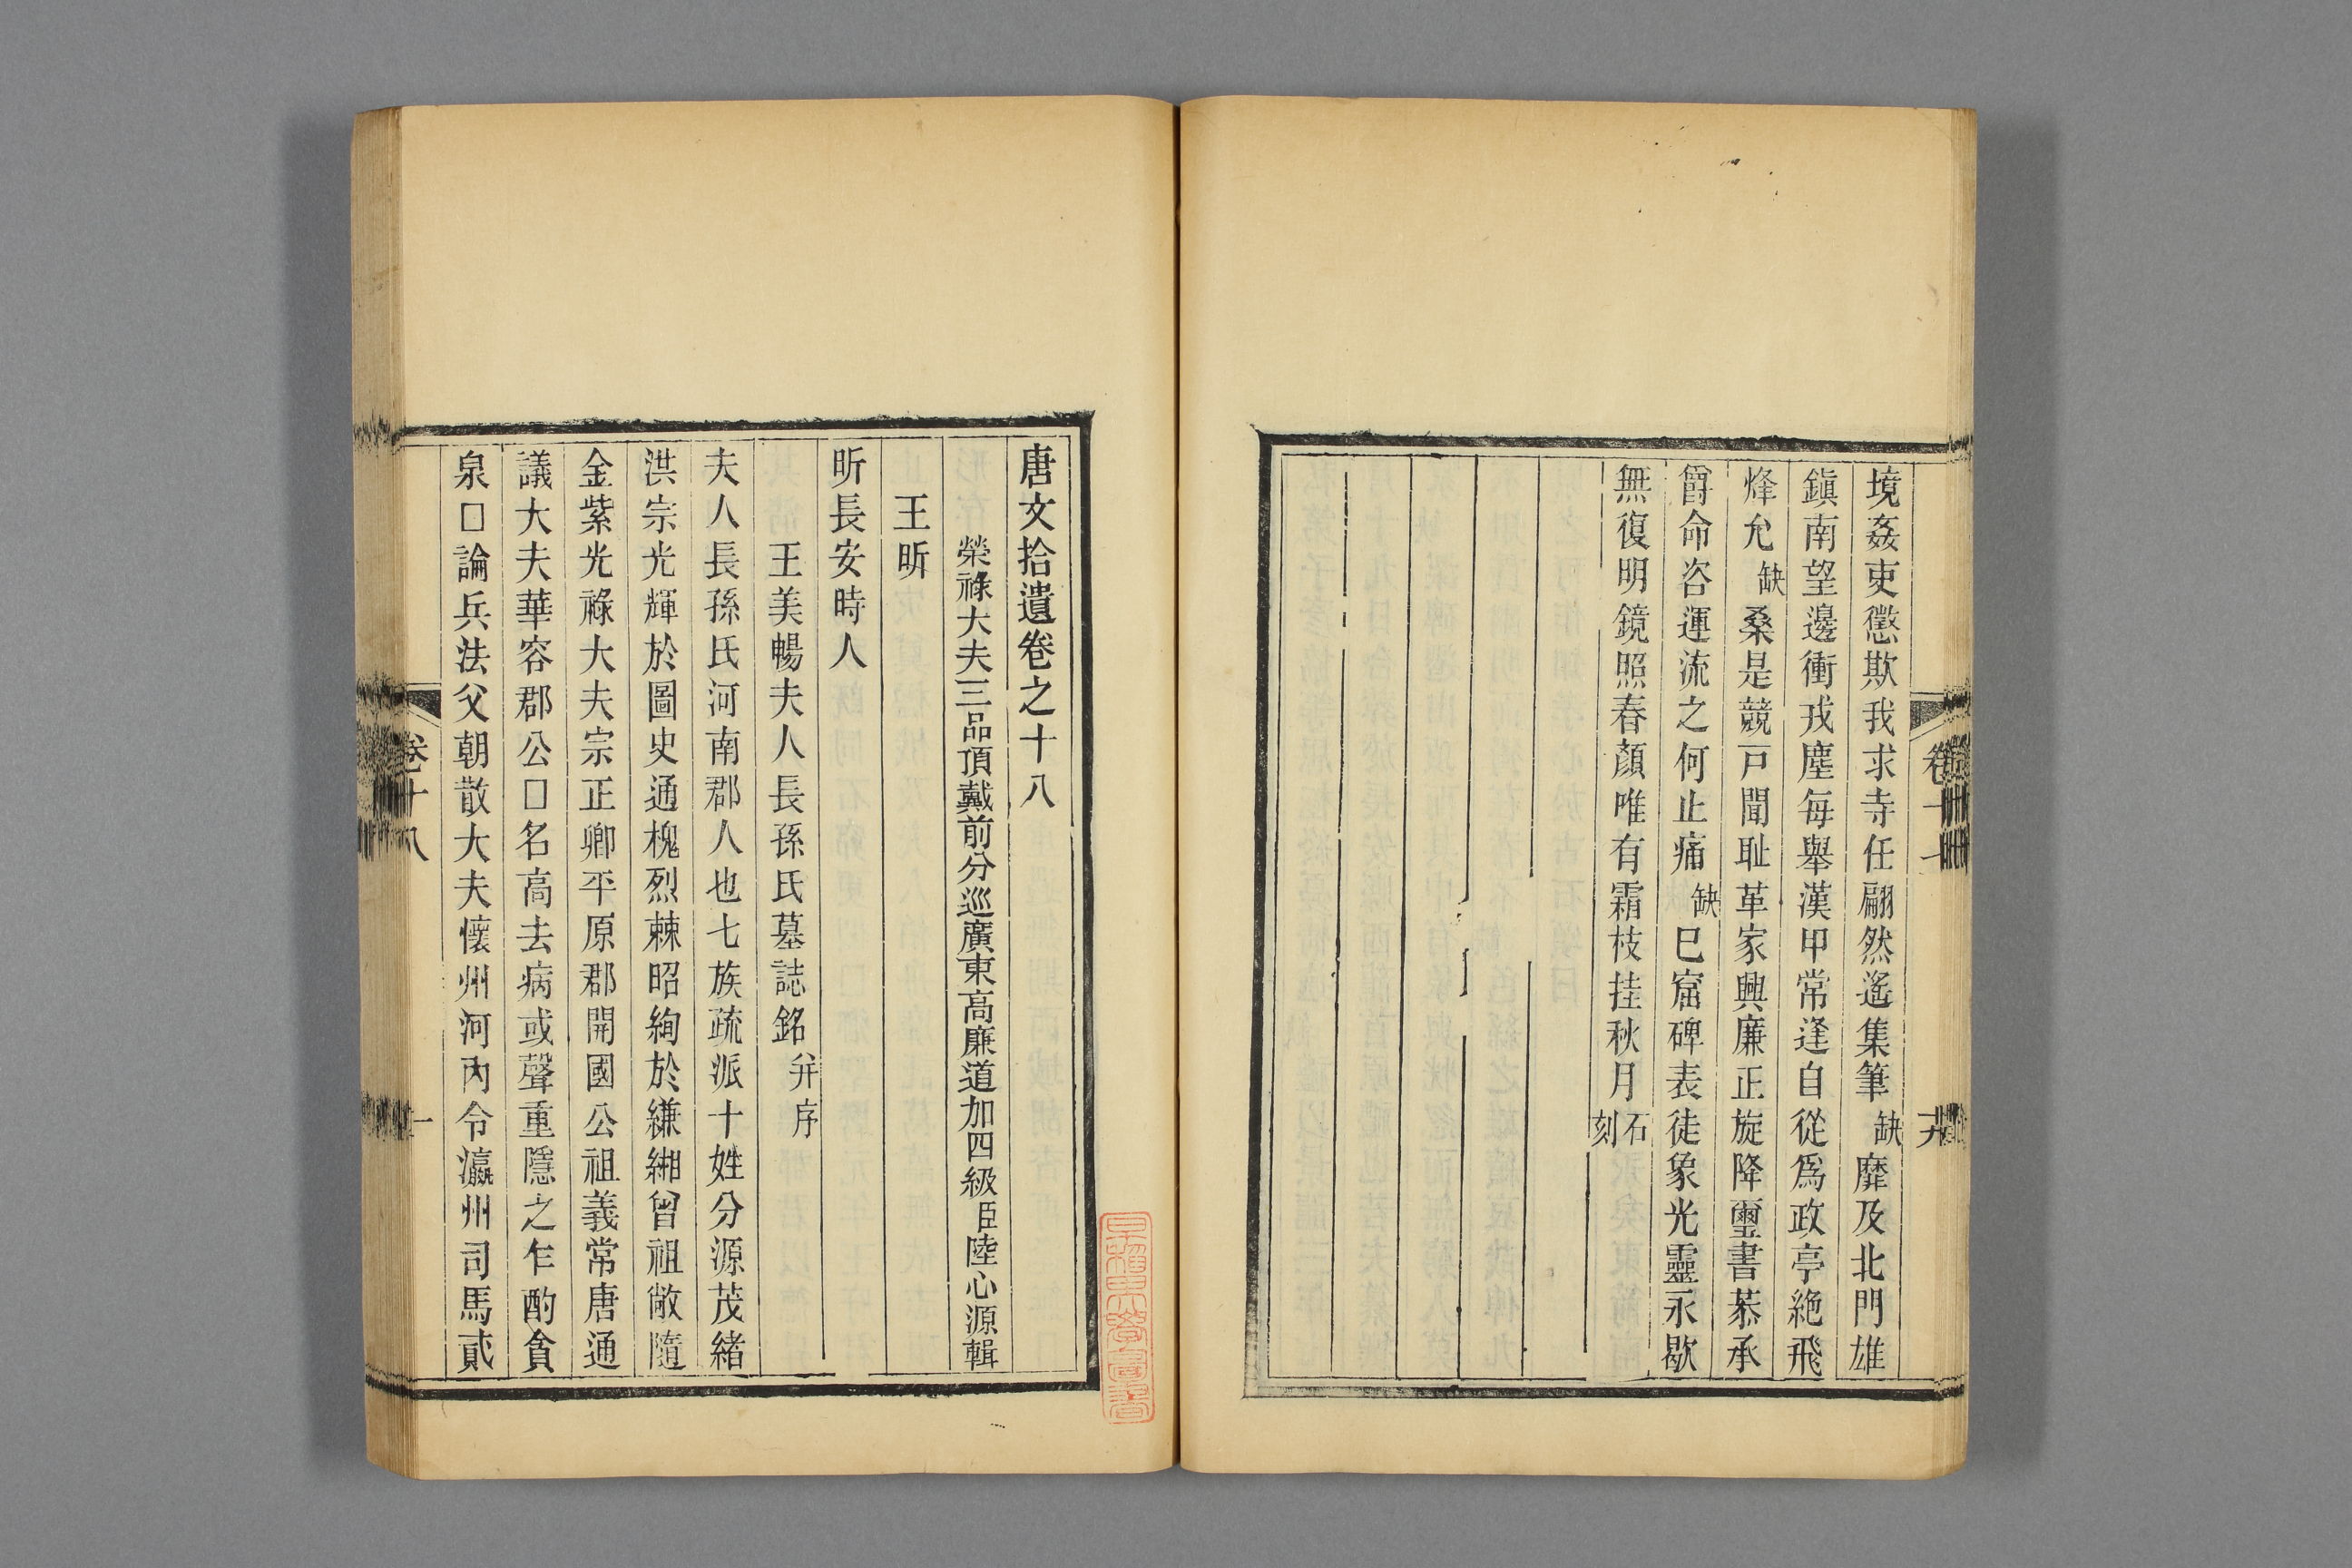 境姦吏懲欺我求寺任翩然遙集筆缺靡及北門雄
鎭南望邊衝戎塵每舉漢甲常逢自從爲政亭絶飛
烽允缺桑是競戸聞耻革家興廉正旋降璽書恭承
爵命咨運流之何止痛缺巳窟碑表徒象光靈永歇
無復明鏡照春顏唯有霜枝挂秋月石刻
唐文拾遺卷之十八
榮祿大夫三品頂戴前分巡廣東高廉道加四級臣陸心源輯
王昕
昕長安時人
王美暢夫人長孫氏墓誌銘并序
夫人長孫氏河南郡人也七族疏派十姓分源茂緒
洪宗光輝於圖史通槐烈棘昭絢於縑緗曾祖敞隨
金紫光祿大夫宗正卿平原郡開國公祖義常唐通
議大夫華容郡公□名高去病或聲重隱之乍酌貪
泉□論兵法父朝散大夫懷州河內令瀛州司馬貳
卷十八
一